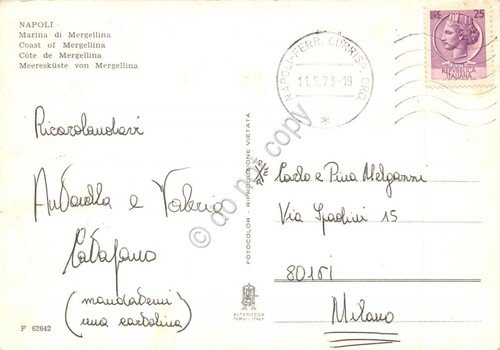 NAPOLI
Marina di Mergellina
Coast of Mergellina
Côte de Mergellina
Meeresküste von Mergellina
Ricordandovi
Antonella e Valerio
Catafano
(mandatemi
una cartolina)
F 62642
FOTOCOLOR - RIPRODUZIONE VIETATA
ALTEROCCA
TERNI - ITALY
NAPOLI-FERR. CORRISP. ORD.
11.5.73-19
LIRE 25
REPUBBLICA
ITALIANA
Carlo e Pina
Via Spadini 15
80151
Milano
do not copy